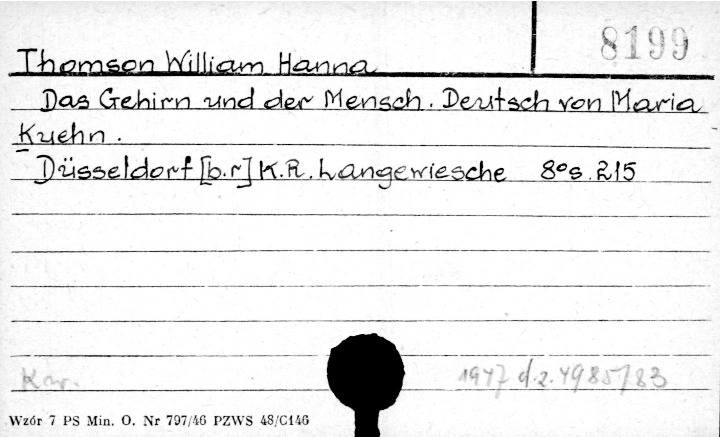 8199
Thomson William Hanna
Das Gehirn und der Mensch. Deutsch von Maria
Kuehn.
Düsseldorf [b.r] K.R. Langewiesche 8° s. 215
Kar.
1947 d.2.4985/83
Wzór 7 PS Min. O. Nr 797/46 PZWS 48/C146